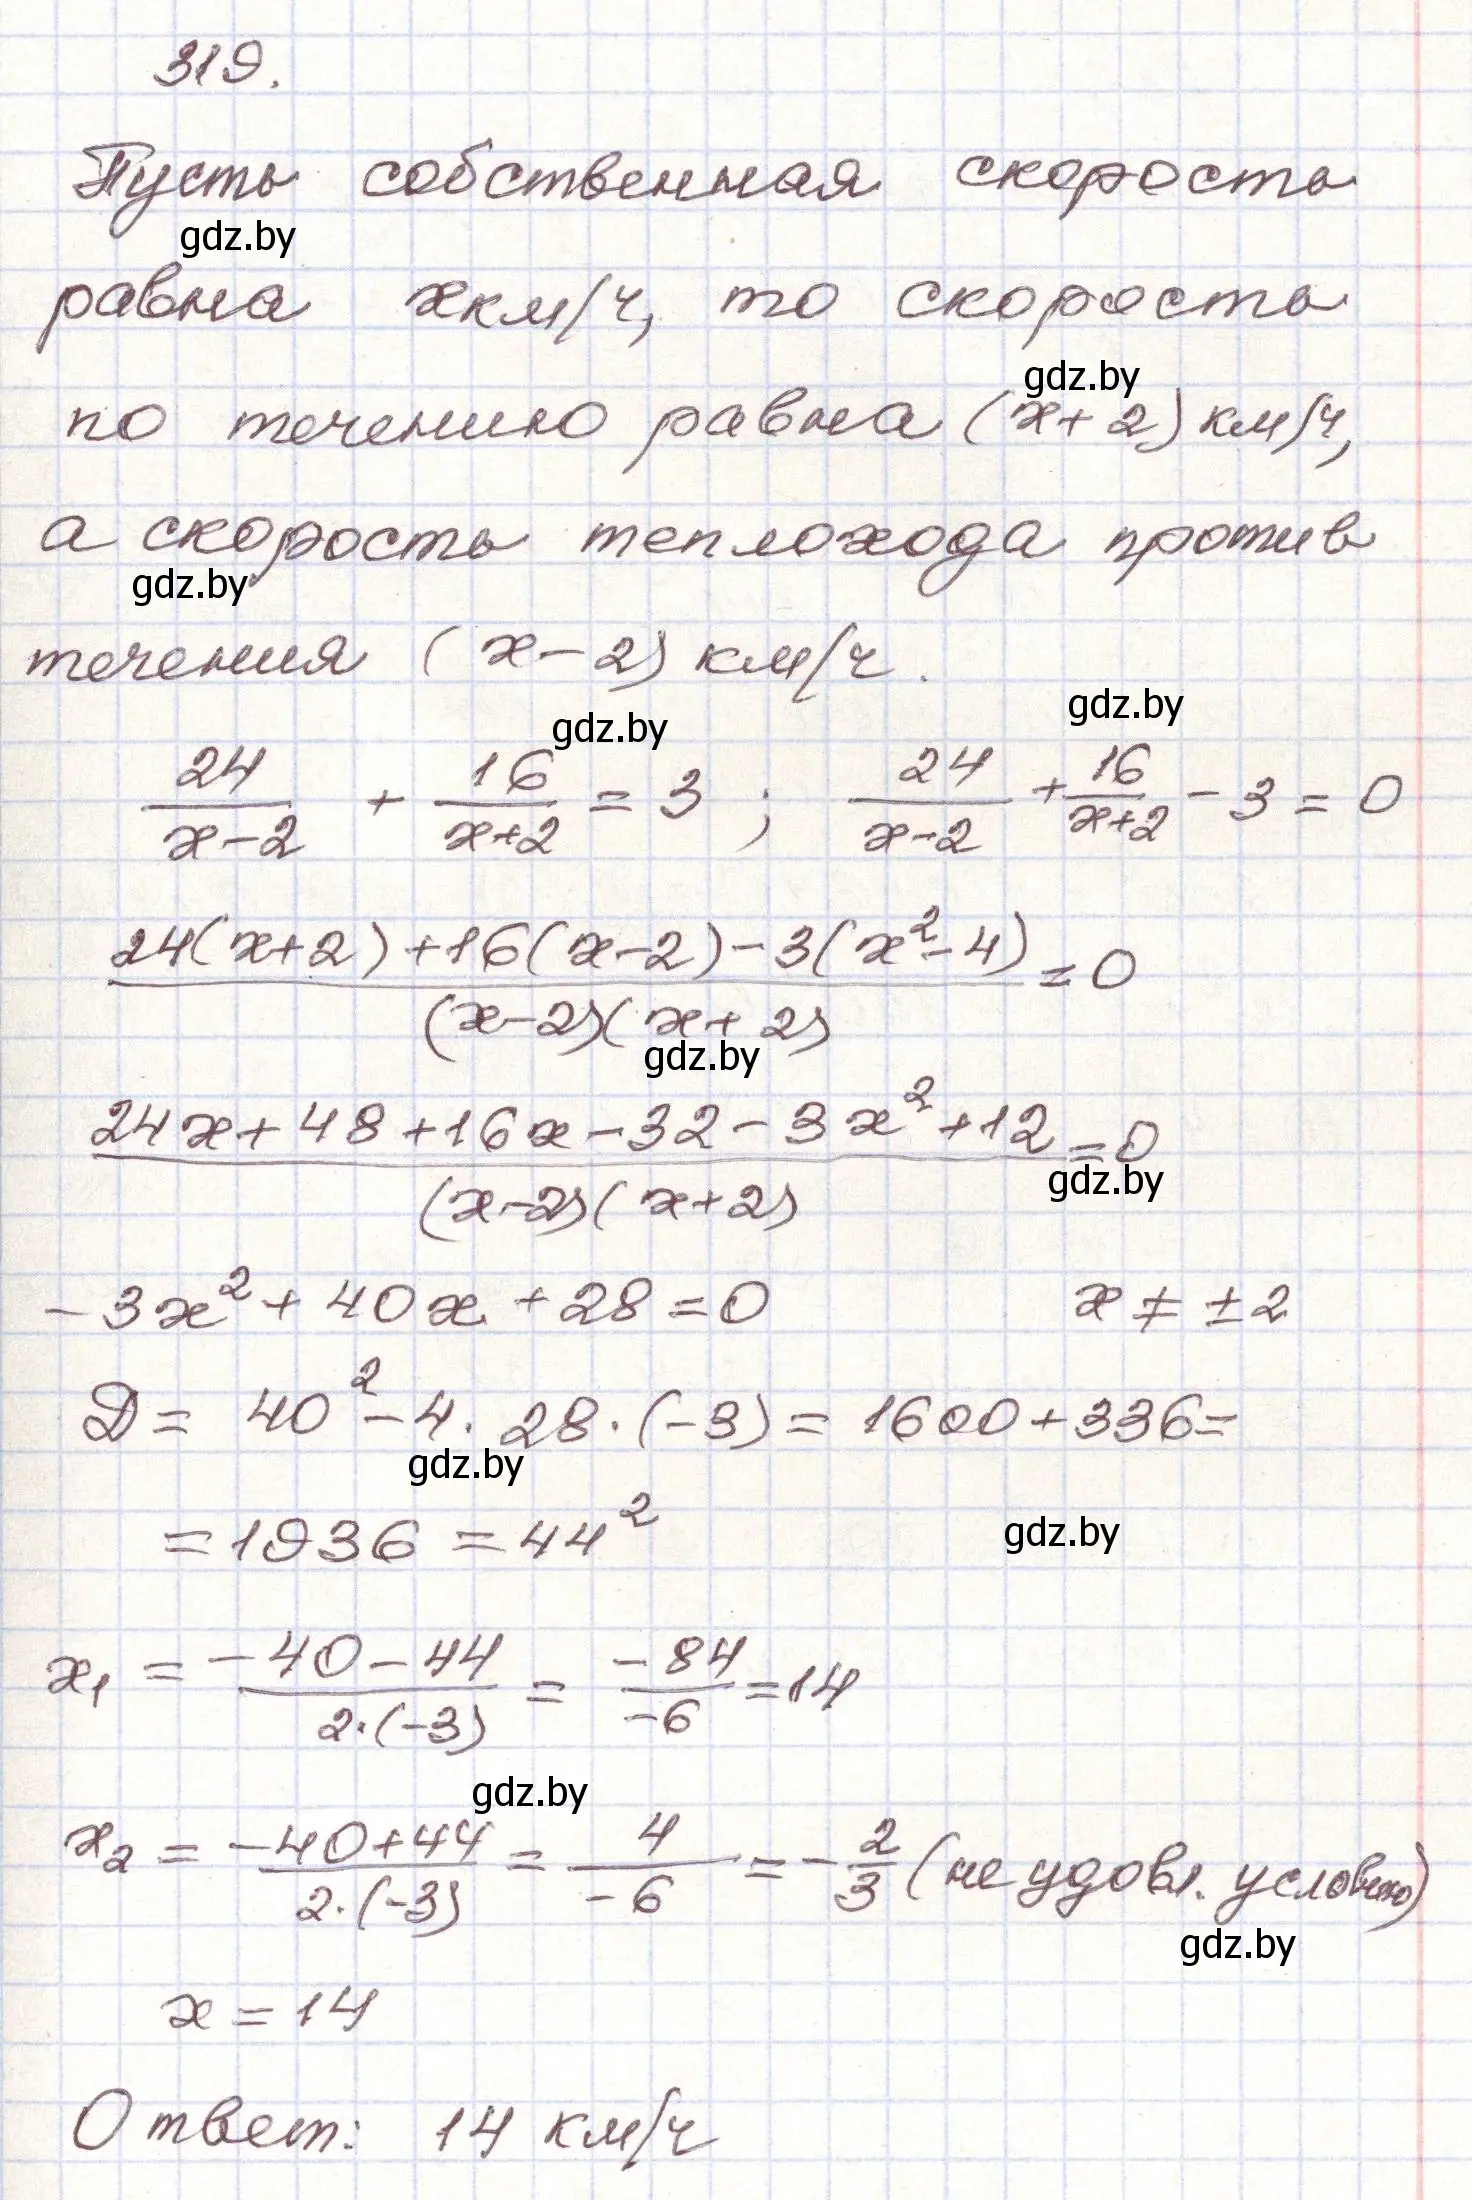 319.
Пусть собственная скорость
gdz.by
равна x км/ч, то скорость
gdz.by
по течению равна (x+2) км/ч,
а скорость теплохода против
gdz.by
течения (x-2) км/ч.
gdz.by gdz.by
24/(x-2) + 16/(x+2) = 3 ; 24/(x-2) + 16/(x+2) - 3 = 0
(24(x+2)+16(x-2)-3(x²-4))/((x-2)(x+2)) = 0
gdz.by
(24x+48+16x-32-3x²+12)/((x-2)(x+2)) = 0
gdz.by
-3x²+40x+28=0 x ≠ ±2
D = 40²-4·28·(-3) = 1600+336=
gdz.by
=1936=44²
gdz.by
x₁ = (-40-44)/(2·(-3)) = -84/-6 = 14
gdz.by
x₂ = (-40+44)/(2·(-3)) = 4/-6 = -2/3 (не удовл. условию)
gdz.by
x = 14
Ответ: 14 км/ч